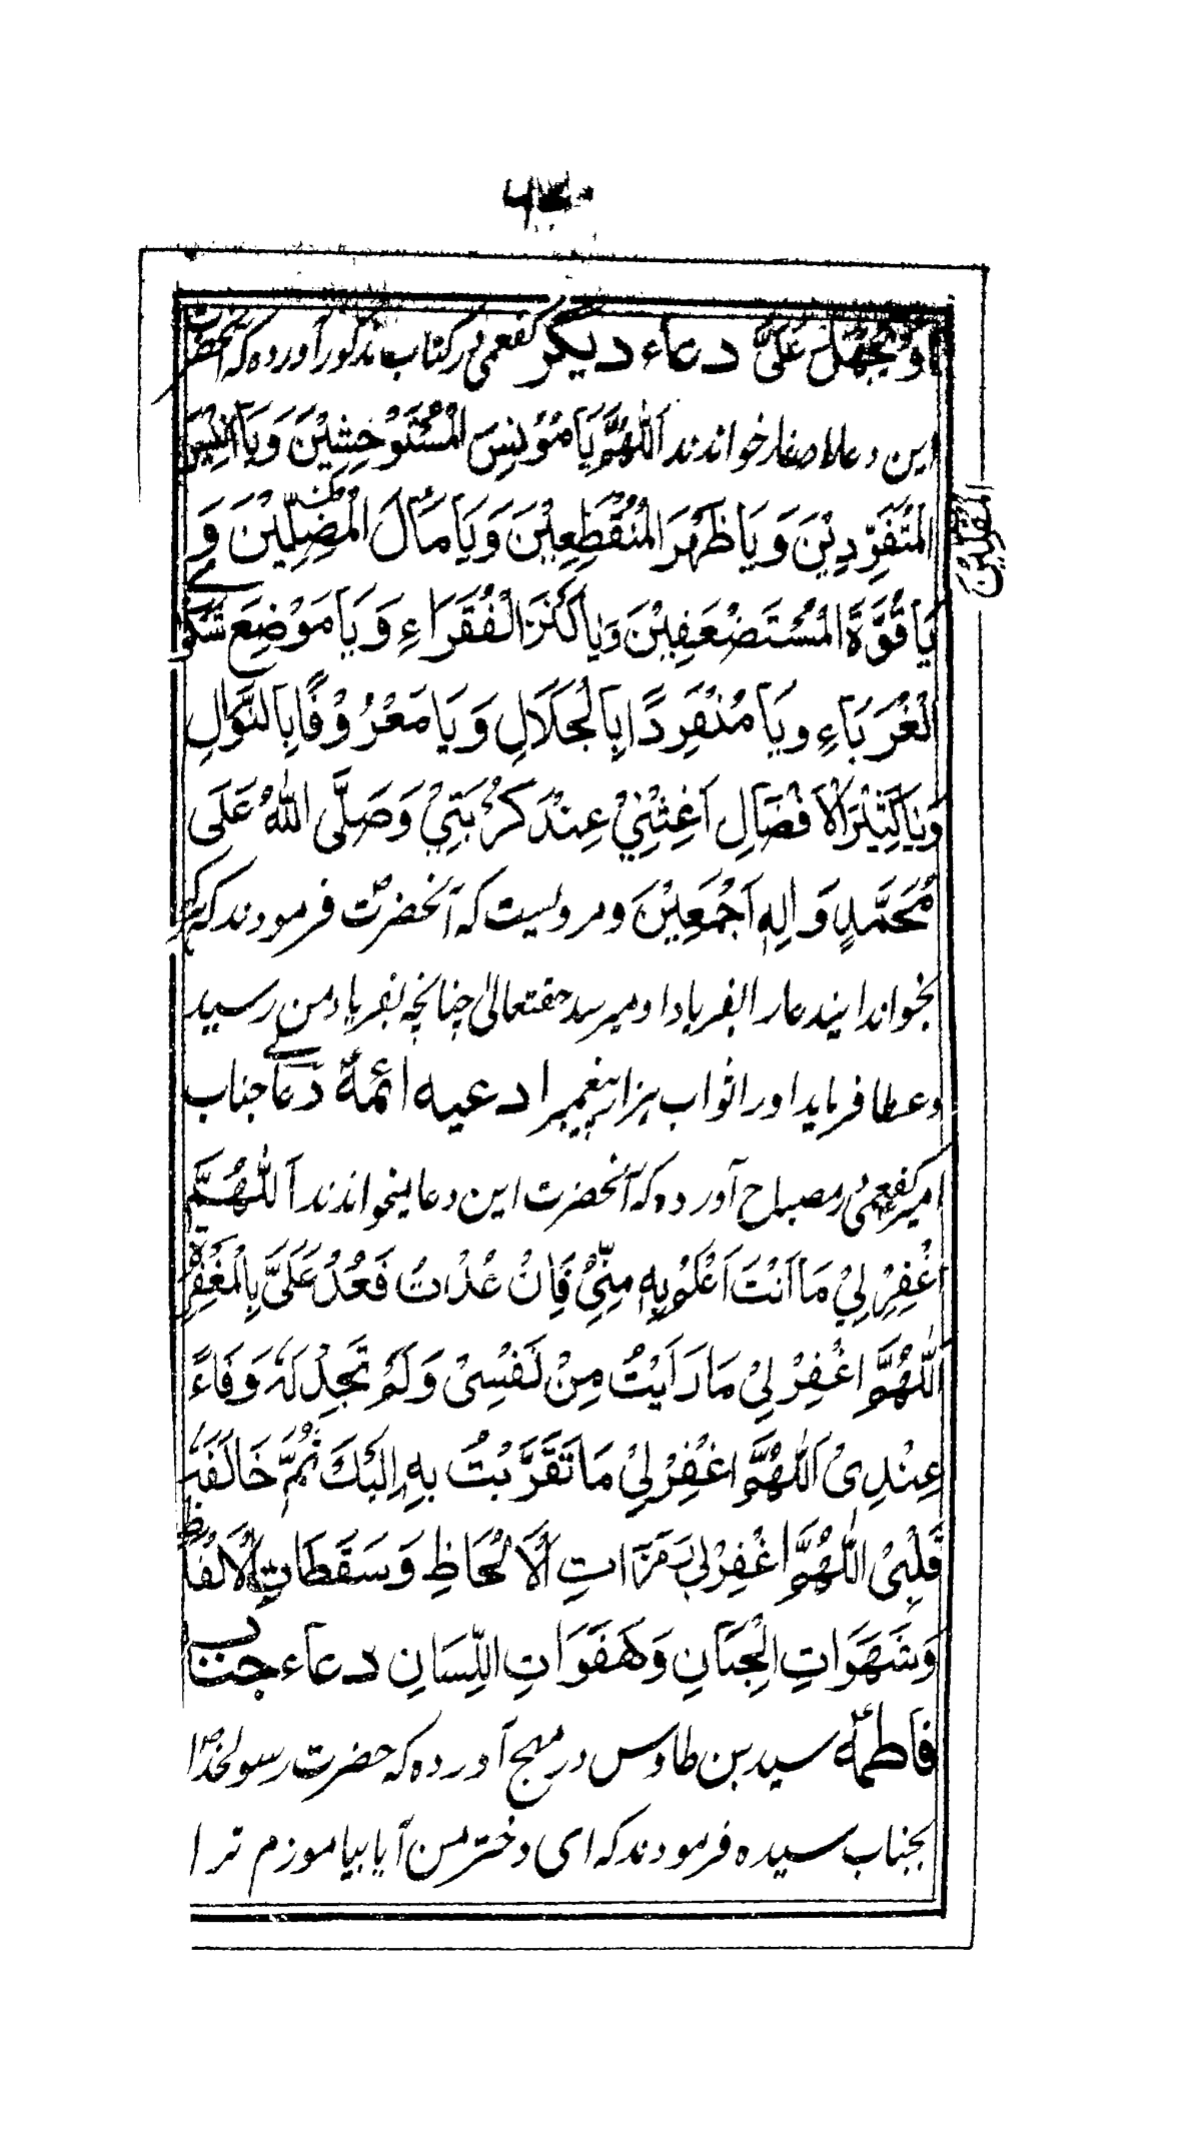 اَوْ يُجْهَلَ عَلَيَّ دعاء ديگر كفعمى در كتاب مذكور آورده كه آنحضرت
اين دعا را خواندند اَللّٰهُمَّ يَا مُوْنِسَ الْمُسْتَوْحِشِيْنَ وَيَا اَنِيْسَ
الْمُتَفَرِّدِيْنَ وَيَا ظَهْرَ الْمُنْقَطِعِيْنَ وَيَا مَالَ الْمُضِلِّيْنَ وَ
المقلين
يَا قُوَّةَ الْمُسْتَضْعَفِيْنَ وَيَا كَنْزَ الْفُقَرَاءِ وَيَا مَوْضِعَ شَكْوَے
الْغُرَبَاءِ وَيَا مُنْفَرِدًا بِالْجَلَالِ وَيَا مَعْرُوْفًا بِالنَّوَالِ
وَيَا كَثِيْرَ الْاَفْضَالِ اَغِثْنِيْ عِنْدَ كَرْبَتِيْ وَصَلَّى اللّٰهُ عَلَى
مُحَمَّدٍ وَاٰلِهٖ اَجْمَعِيْنَ و مرويست كه آنحضرت فرمودند كه هر كه
بخواند ايندعا را بفرياد او ميرسد حقتعالىٰ چنانچه بفرياد من رسيد
و عطا فرمايد او را ثواب هزار پيغمبر ادعيه ائمه دعاے جناب
امير كفعمى در مصباح آورده كه آنحضرت اين دعا ميخواندند اَللّٰهُمَّ
اغْفِرْ لِيْ مَا اَنْتَ اَعْلَمُ بِهٖ مِنِّيْ فَاِنْ عُدْتُ فَعُدْ عَلَيَّ بِالْمَغْفِرَةِ
اَللّٰهُمَّ اغْفِرْ لِيْ مَا رَاَيْتُ مِنْ نَفْسِيْ وَلَمْ تَجِدْ لَهٗ وَفَاءً
عِنْدِىْ اَللّٰهُمَّ اغْفِرْ لِيْ مَا تَقَرَّبْتُ بِهٖ اِلَيْكَ ثُمَّ خَالَفَهٗ
قَلْبِىْ اَللّٰهُمَّ اغْفِرْ لِيْ رَمَزَاتِ الْاَلْحَاظِ وَسَقَطَاتِ الْاَلْفَاظِ
وَشَهَوَاتِ الْجَنَانِ وَهَفَوَاتِ اللِّسَانِ دعاء جناب
فاطمهؑ سيد بن طاوس در مهج آورده كه حضرت رسولخداؐ
بجناب سيده فرمودند كه اى دختر من آيا بياموزم ترا